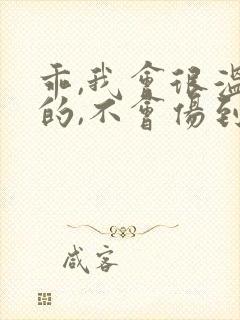 乖,我會很溫
的,不會傷到
咸客